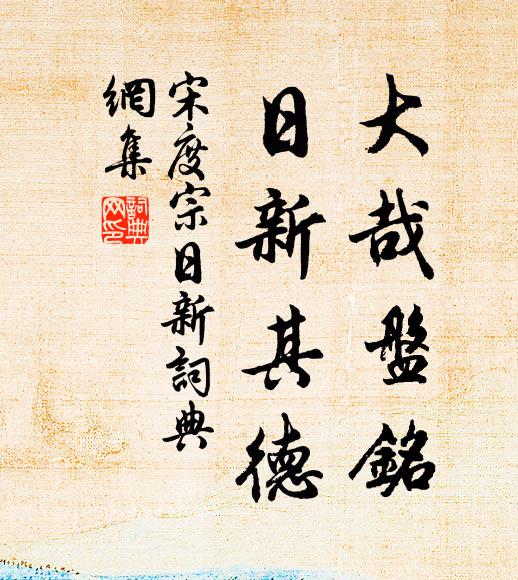 大哉盤銘
日新其德
宋度宗日新詞典
網集
詞典
网印